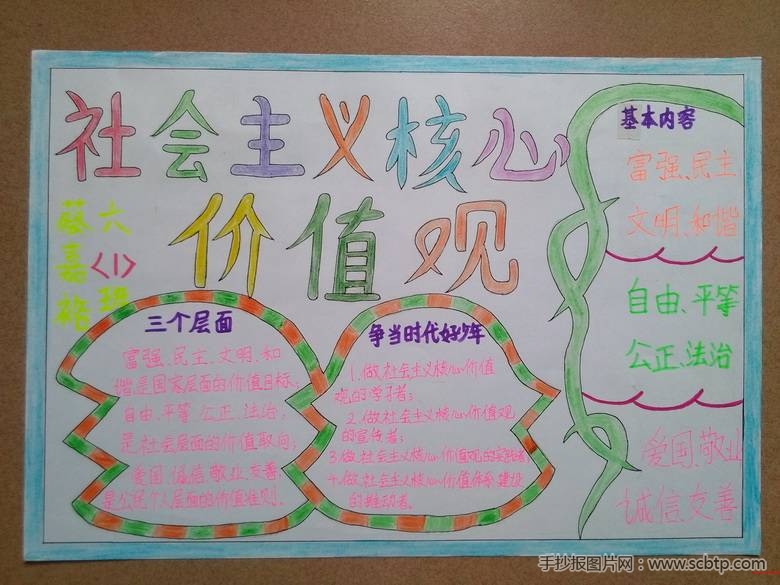 社会主义核心
价值观
六〈1〉班
蔡嘉
三个层面
富强、民主、文明、和
谐,是国家层面的价值目标;
自由、平等、公正、法治;
是社会层面的价值取向;
爱国、诚信、敬业、友善
是公民个人层面的价值准则。
争当时代好少年
1.做社会主义核心价值
观的学习者;
2.做社会主义核心价值观
的宣传者;
3.做社会主义核心价值观的实践者;
4.做社会主义核心价值体系建设
的推动者。
基本内容
富强、民主、
文明、和谐
自由、平等
公正、法治
爱国、敬业
诚信、友善
手抄报图片网:www.scbtp.com